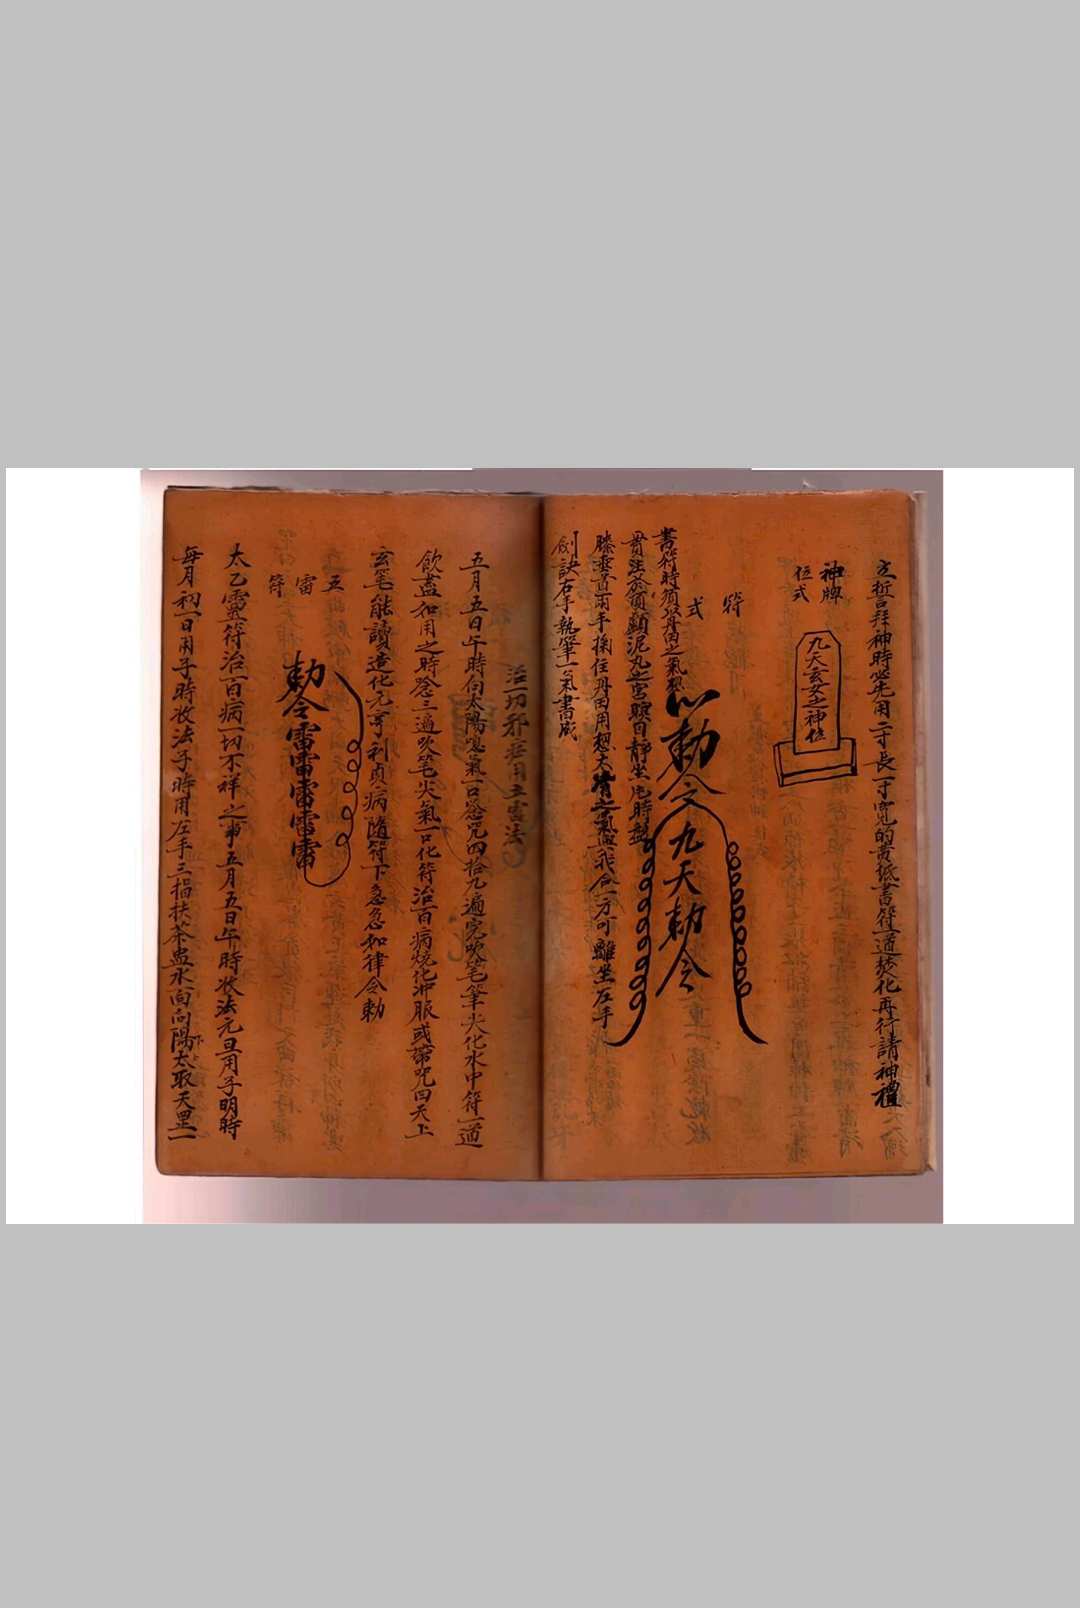 立誓拜神時必先用二寸長一寸寬的黃紙書符一道焚化再行請神禮
神牌
位式
九天玄女之神位
符式
心勅令九天勅令
書符時須以丹田之氣想
貫注於頂顖泥丸之宮瞑目靜坐
膝垂首兩手操住丹田用想天
我合一方可離坐左手
劍訣右手執筆一氣書成
治一切邪症用五雷法
五月五日午時向太陽吸氣一口念咒四拾九遍完吹筆尖化水中符一道
飲盡如用之時念三遍吹筆尖氣一口化符治百病燒化沖服或諦咒曰天上
玄筆能讀造化元亨利貞病隨符下急急如律令勅
五雷符
勅令雷雷雷雷雷
太乙靈符治百病一切不祥之事五月五日午時收法元旦用子明時
每月初一日用子時收法子時用左手三指扶茶盅水面向陽太取天罡一